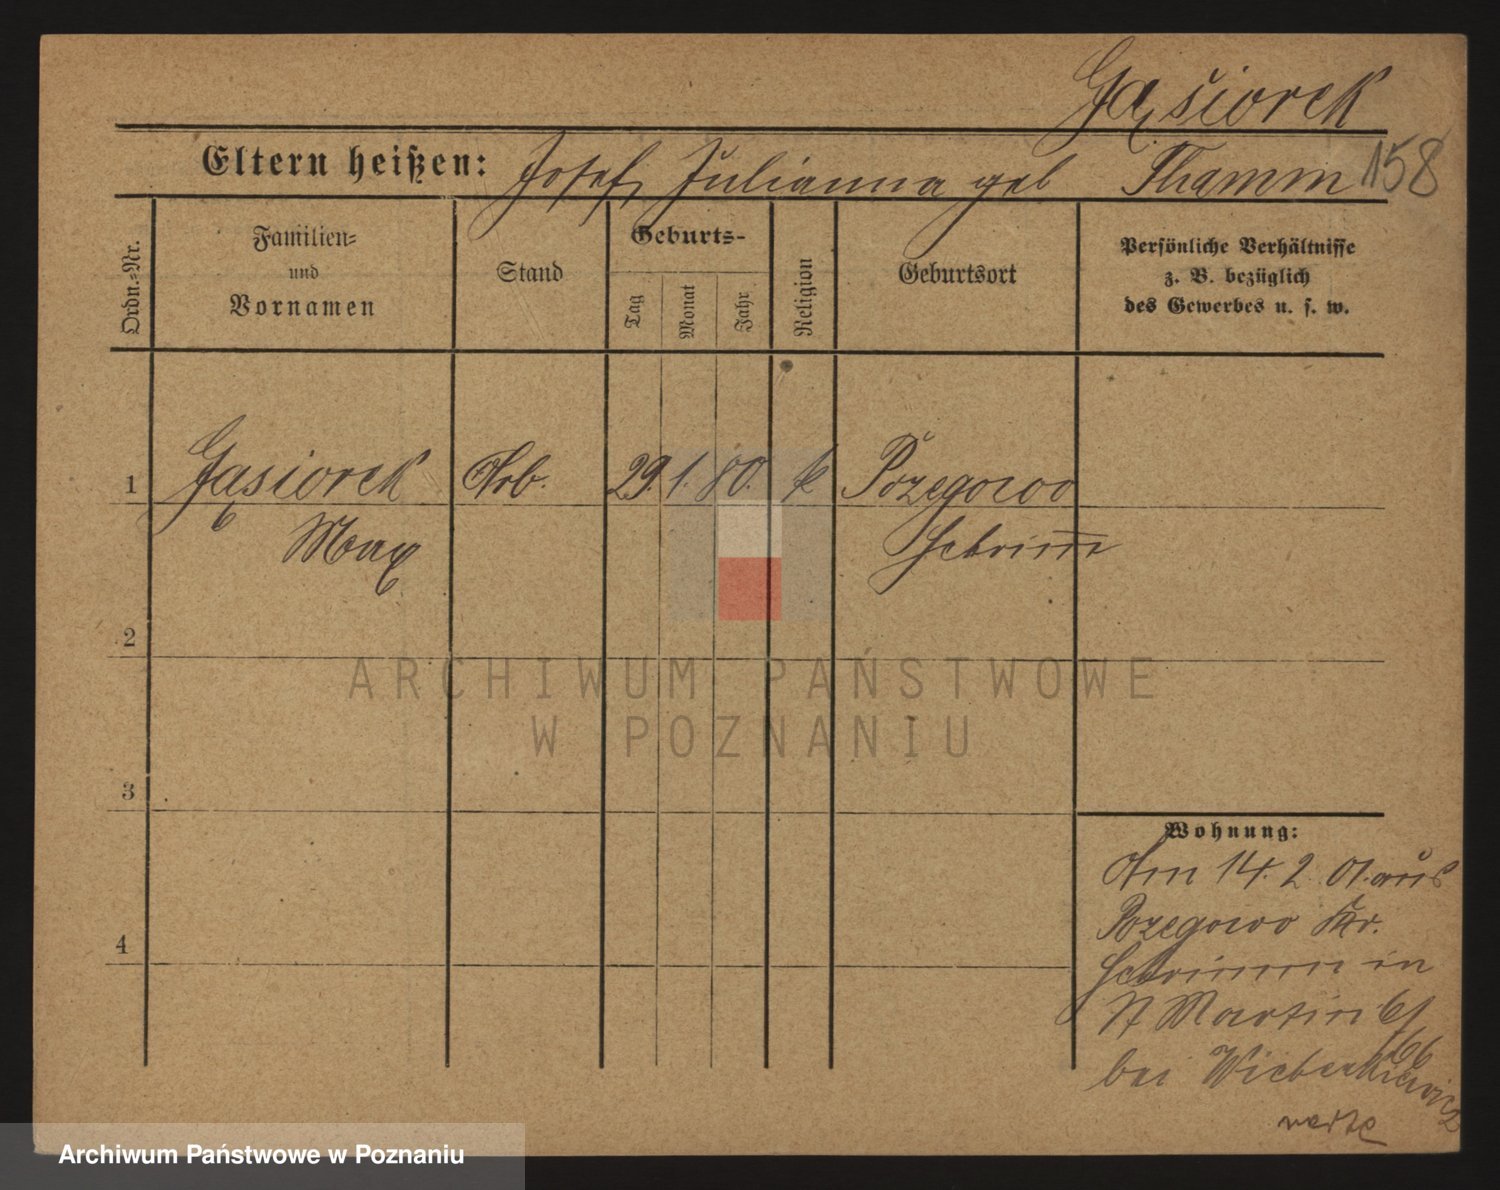 Gąsiorek
Eltern heißen: Josef, Julianna geb Thamm 158
Ordn.-Nr.
Familien-
und
Vornamen
Stand
Geburts-
Tag
Monat
Jahr
Religion
Geburtsort
Persönliche Verhältnisse
z. B. bezüglich
des Gewerbes u. s. w.
1 Gąsiorek Arb. 29. 1. 80. k Pozegowo
Max Schrim̅
2
ARCHIWUM PAŃSTWOWE
W POZNANIU
3
Wohnung:
Am 14. 2. 01. aus
Pozegowo Kr.
Schrimm in
St Martin 61
66
bei
4
Archiwum Państwowe w Poznaniu